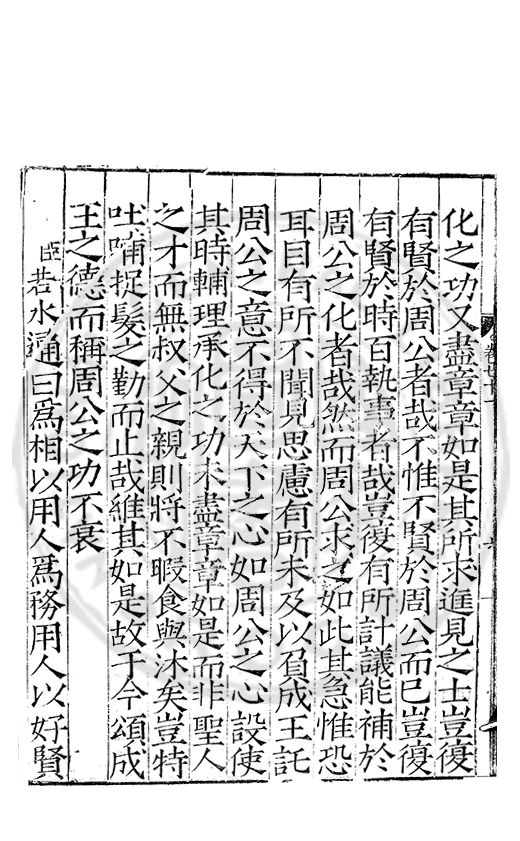 化之功又盡章章如是其所求進見之士豈復
有賢於周公者哉不惟不賢於周公而已豈復
有賢於時百執事者哉豈復有所計議能補於
周公之化者哉然而周公求之如此其急惟恐
耳目有所不聞見思慮有所未及以負成王託
周公之意不得於天下之心如周公之心設使
其時輔理承化之功未盡章章如是而非聖人
之才而無叔父之親則將不暇食與沐矣豈特
吐哺捉髮之勤而止哉維其如是故于今頌成
王之德而稱周公之功不衰
臣若水通曰爲相以用人爲務用人以好賢